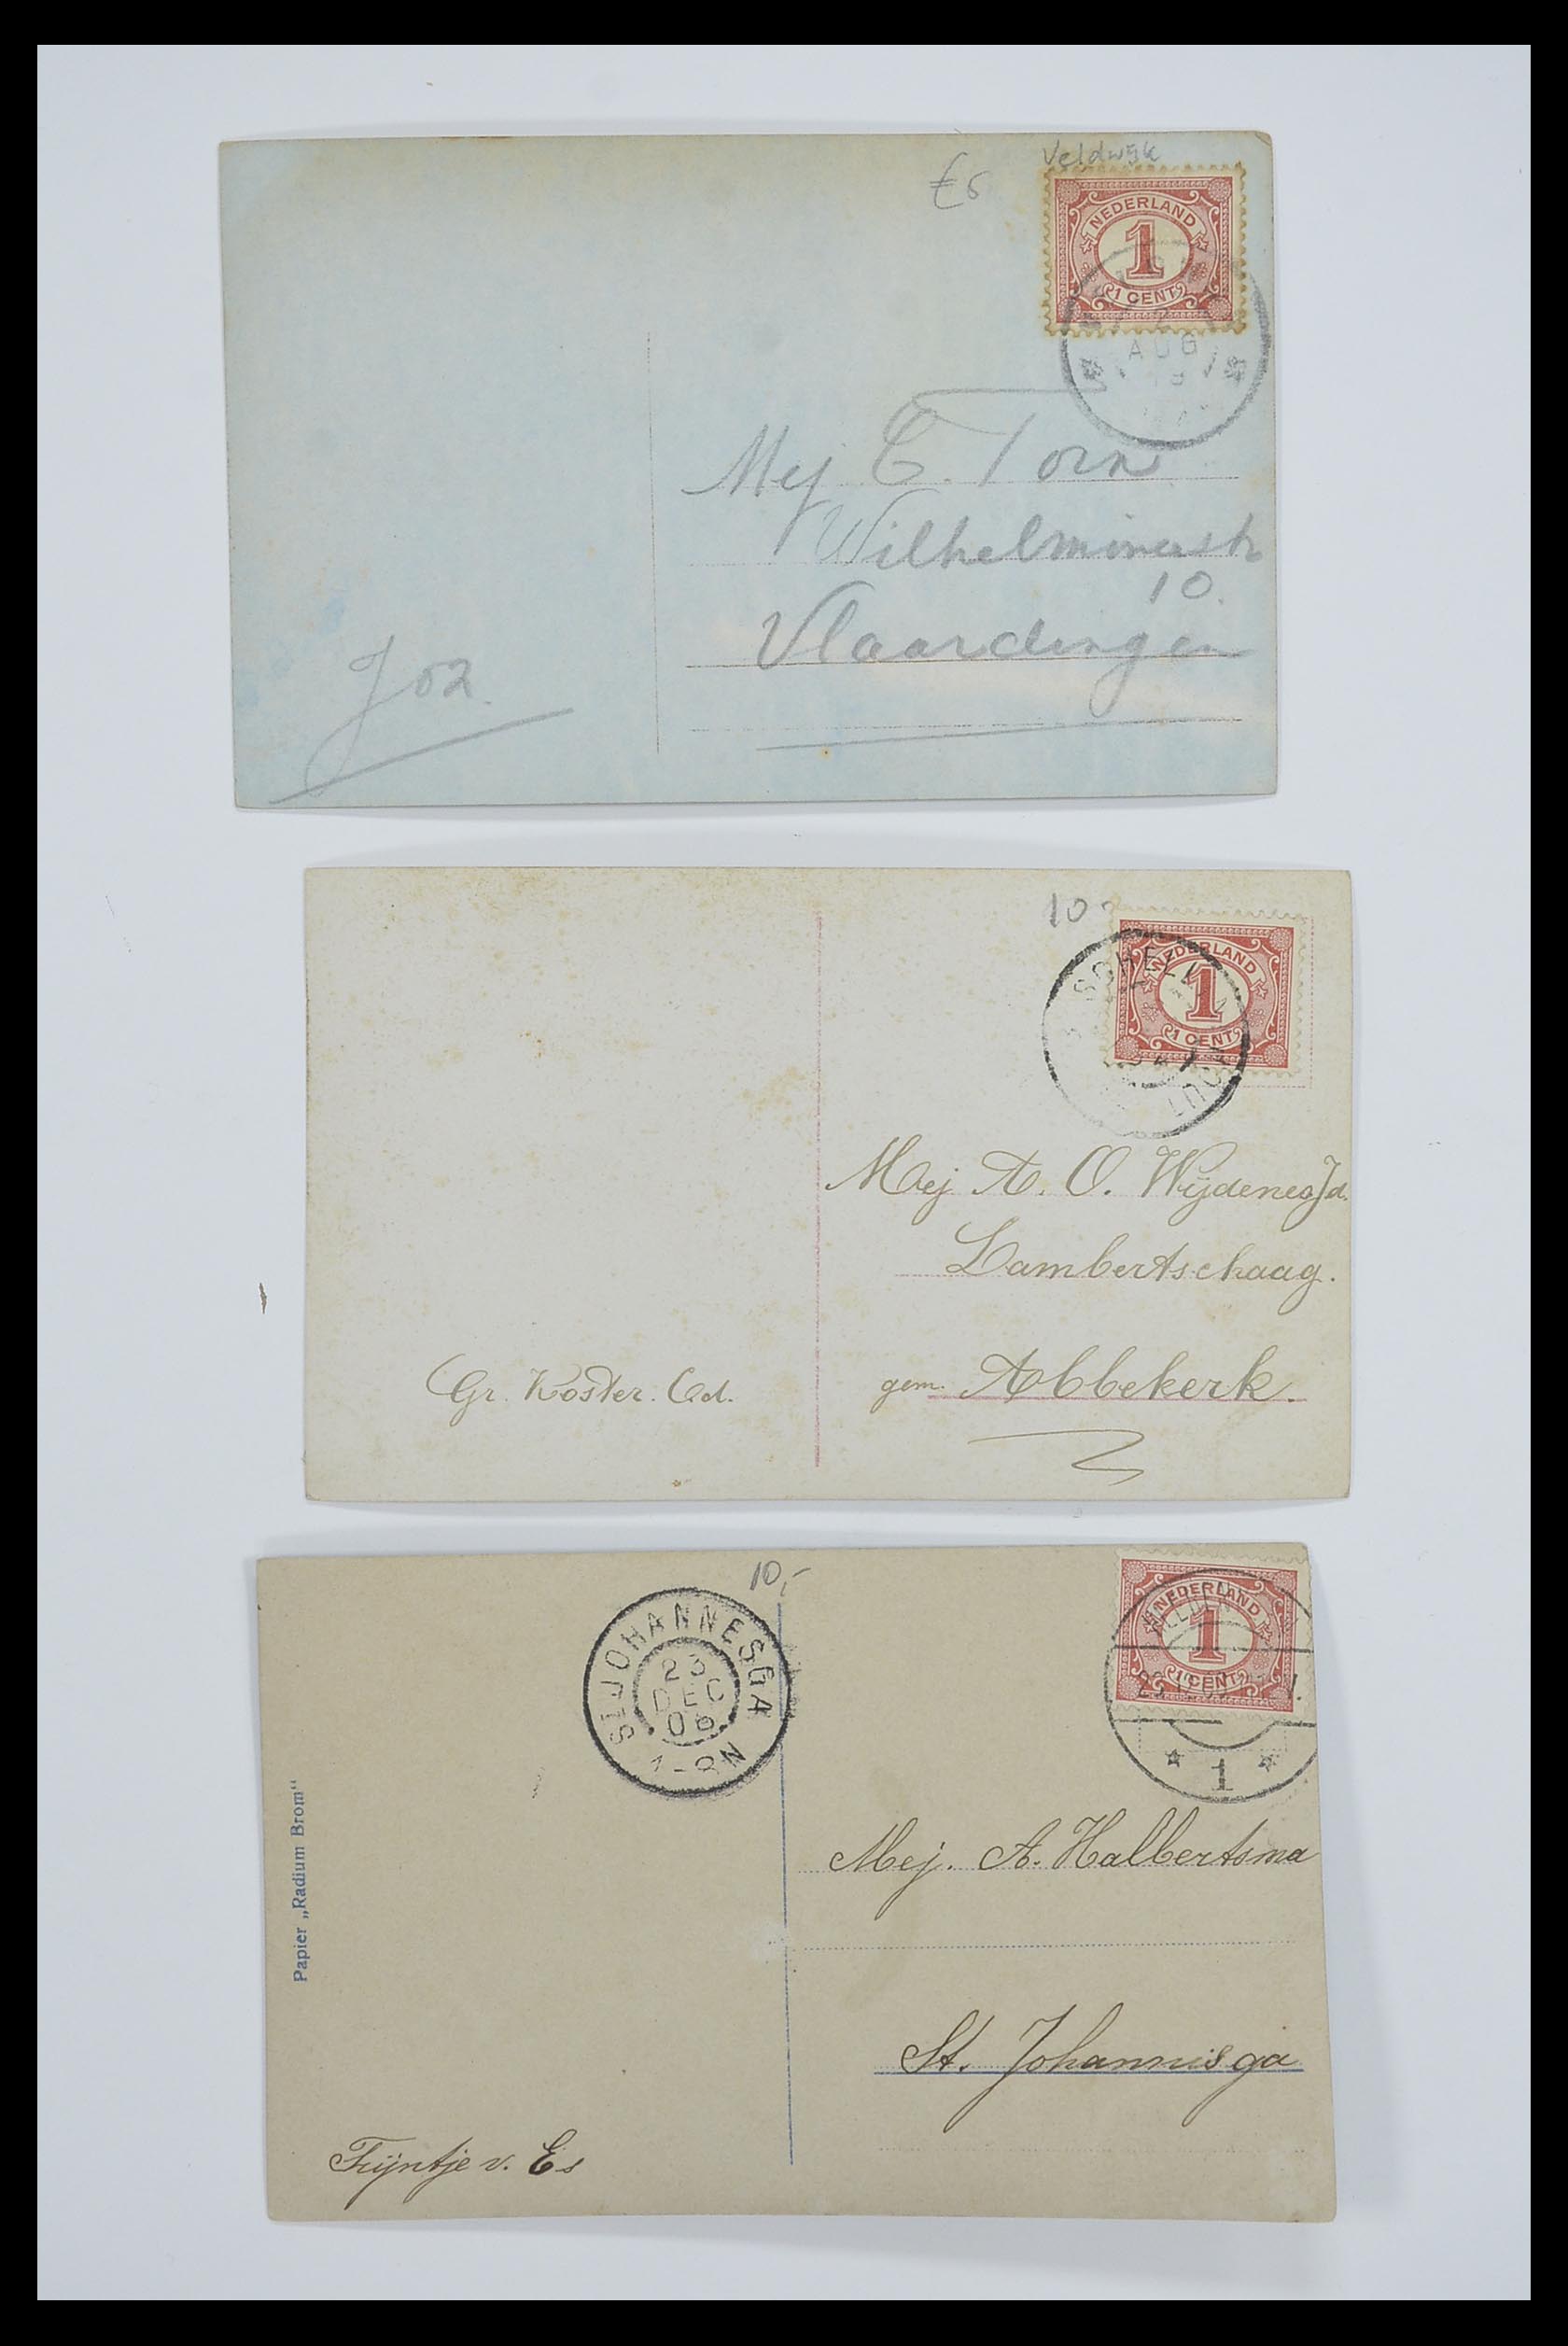 Veldwijk
€5
NEDERLAND
1
1 CENT
AUG
Mej C. Torn
Wilhelminastr
10.
Vlaardingen
Joz.
10
NEDERLAND
1
1 CENT
SCHELLINKHOUT
Mej A. O. Wijdenes Jd.
Lambertschaag.
gem. Abbekerk.
Gr. Koster. Cd.
10,-
NEDERLAND
1
1 CENT
ST JOHANNESGA
23
DEC
06
1-8N
1
Mej. A. Halbertsma
St. Johannisga
Papier „Radium Brom“
Trijntje v. Es